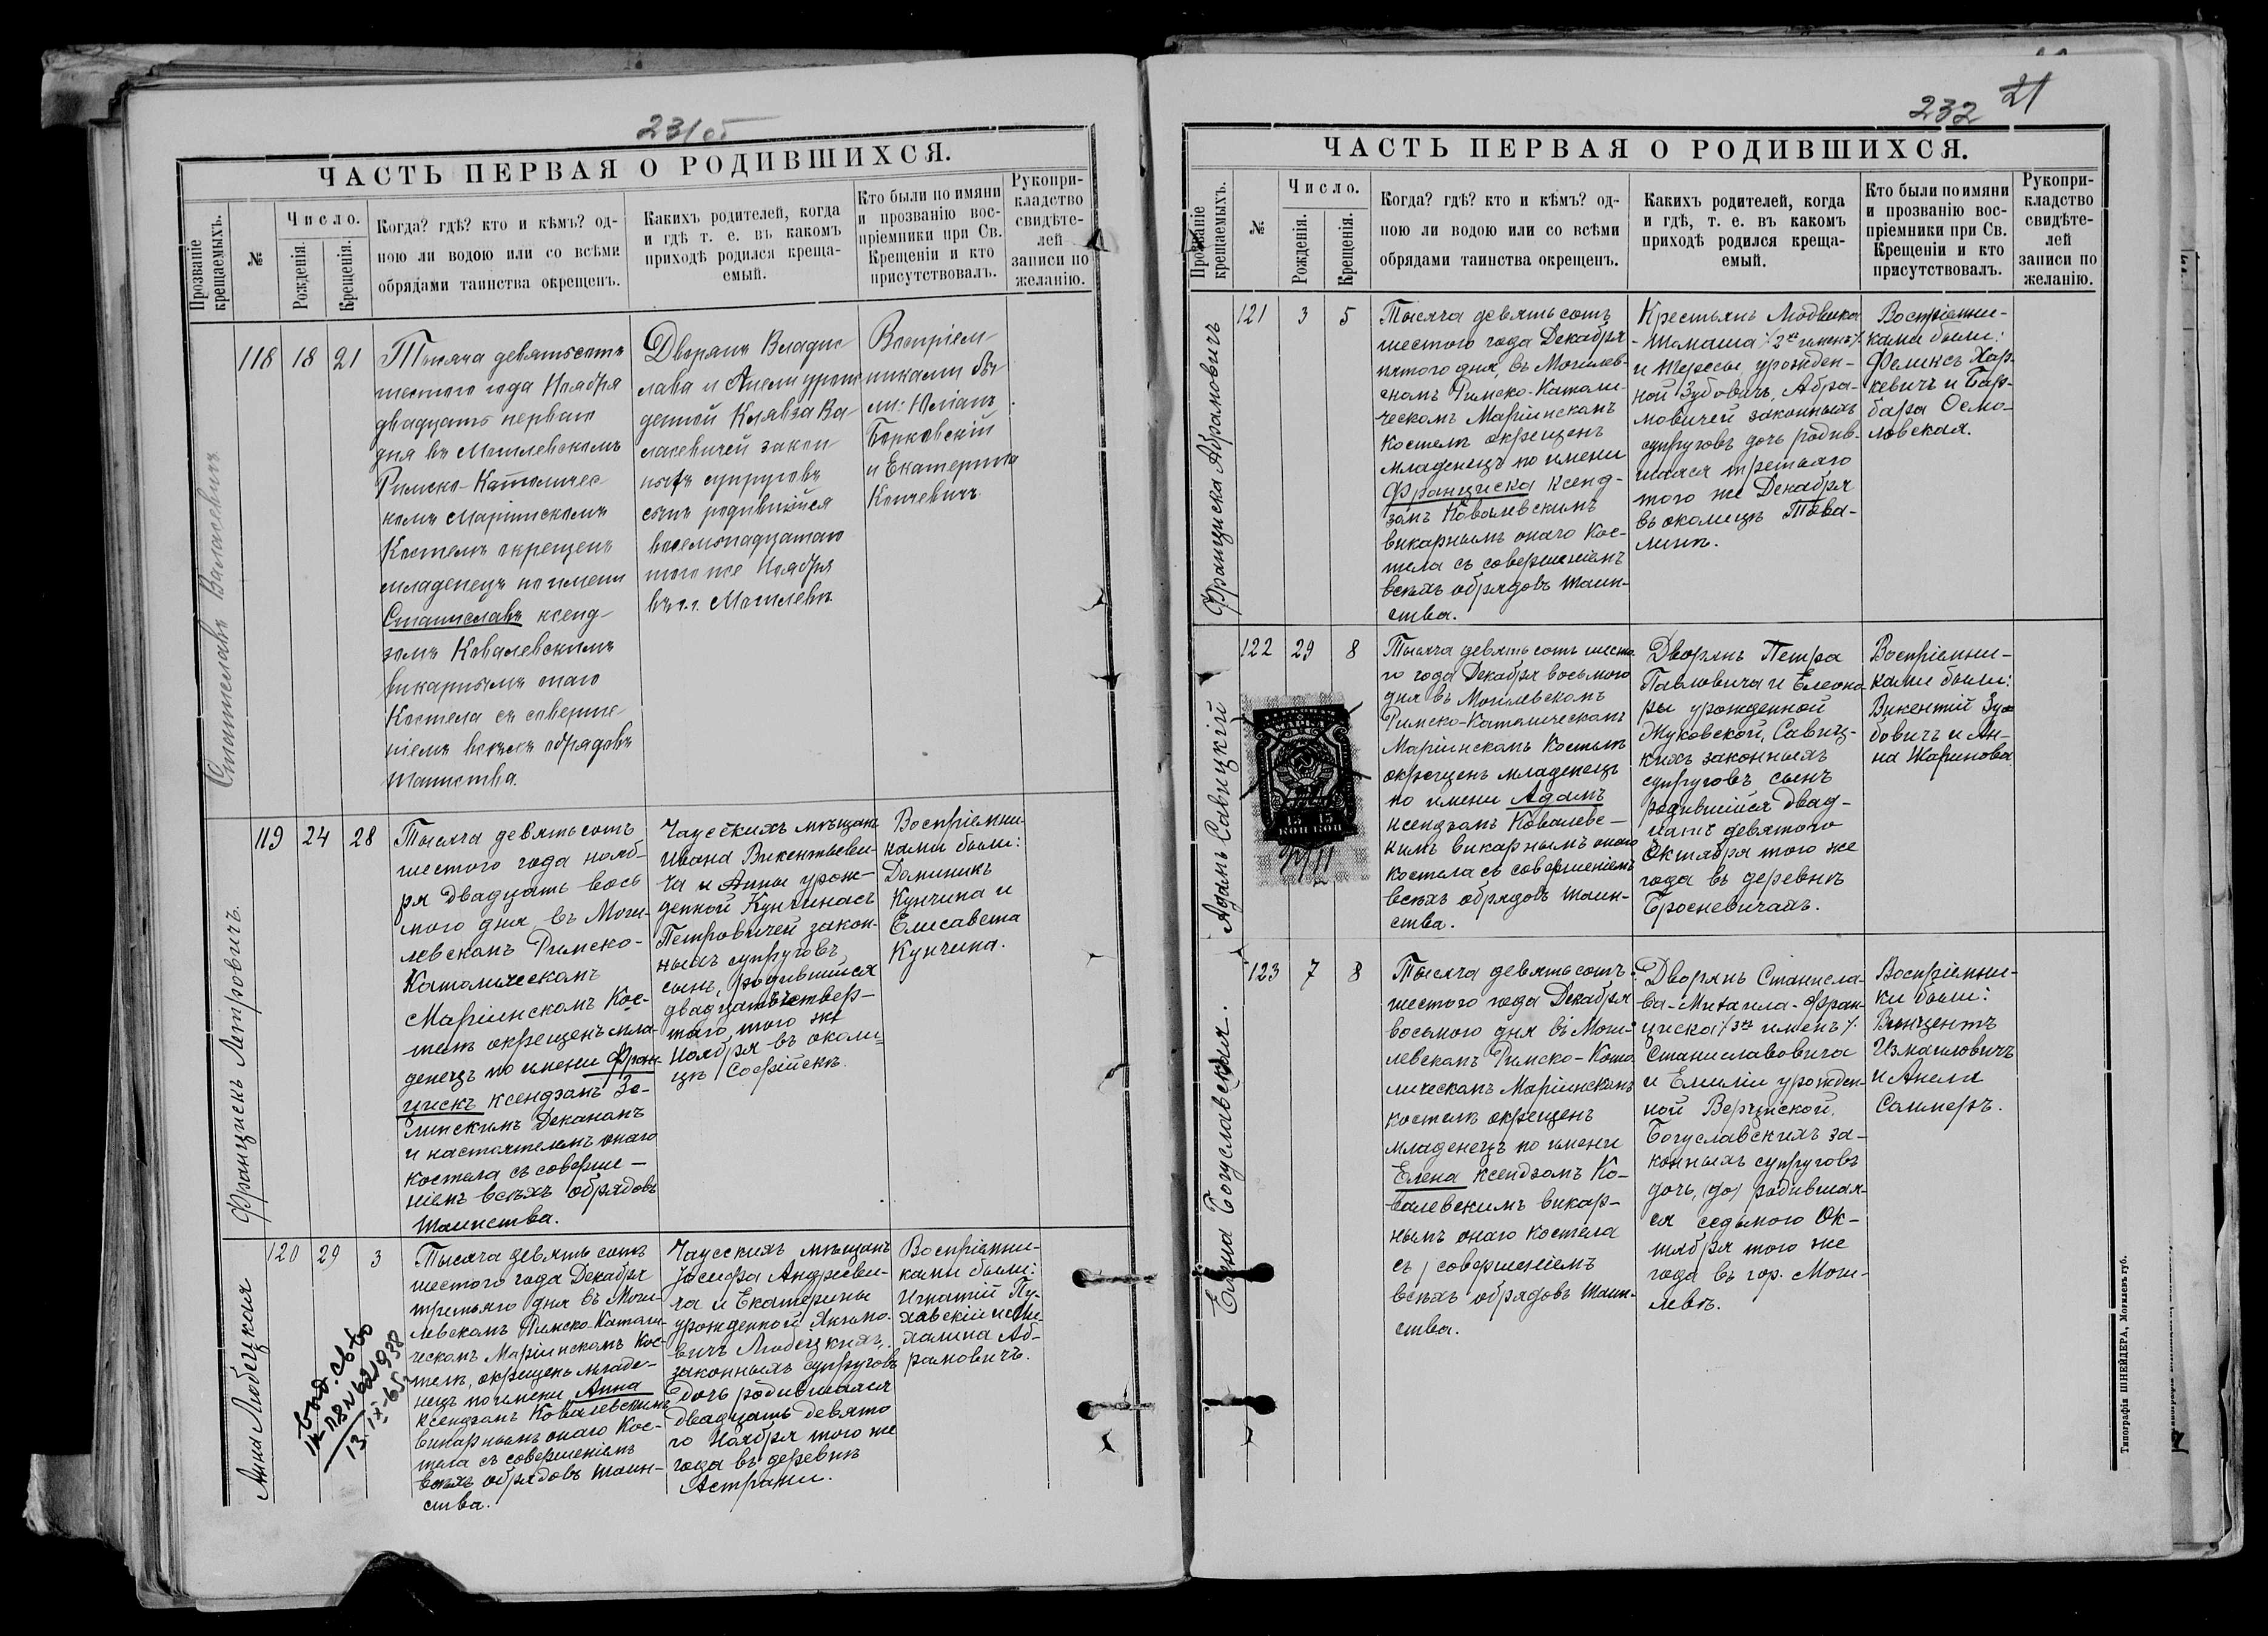 231 об
ЧАСТЬ ПЕРВАЯ О РОДИВШИХСЯ.
Прозваніе крещаемыхъ.
№
Число.
Рожденія.
Крещенія.
Когда? гдѣ? кто и кѣмъ? од-
ною ли водою или со всѣми
обрядами таинства окрещенъ.
Какихъ родителей, когда
и гдѣ т. е. въ какомъ
приходѣ родился креща-
емый.
Кто были по имяни
и прозванію вос-
пріемники при Св.
Крещеніи и кто
присутствовалъ.
Рукопри-
кладство
свидѣте-
лей
записи по
желанію.
Станиславъ Валасевичъ
118 18 21
Тысяча девятьсотъ
шестого года Ноября
двадцать перваго
дня въ Могилевскомъ
Римско-Католичес
комъ Маріинскомъ
Костелѣ окрещенъ
младенецъ по имени
Станиславъ ксенд-
зомъ Ковалевскимъ
викарнымъ онаго
Костела съ соверше-
ніемъ всѣхъ обрядовъ
таинства.
Дворянъ Владис
лава и Анели урож
денной Клявза Ва
ласевичей закон
ныхъ супруговъ
сынъ родившійся
восемьнадцатаго
того же Ноября
въ г. Могилевѣ
Воспріем-
никами бы-
ли: Юліанъ
Борковскій
и Екатерина
Копчевичъ
Францискъ Петровичъ.
119 24 28
Тысяча девятьсотъ
шестого года нояб-
ря двадцать вось
мого дня въ Моги-
левскомъ Римско-
Католическомъ
Маріинскомъ Кос-
телѣ окрещенъ мла-
денецъ по имени Фран-
цискъ ксендзомъ Зе-
линскимъ Деканомъ
и настоятелемъ онаго
костела съ соверше-
ніемъ всѣхъ обрядовъ
таинства.
Чаусскихъ мѣщанъ
Ивана Викентьеви-
ча и Анны урож-
денной Кунчинасъ
Петровичей закон-
ныхъ супруговъ
сынъ, родившійся
двадцать четвер-
таго, того же
Ноября въ околи
цѣ Софійскѣ.
Воспріемни-
ками были:
Доминикъ
Кунчина и
Елисавета
Кунчина.
Анна Любецкая
120 29 3
Тысяча девятьсотъ
шестого года Декабря
третьяго дня въ Моги-
левскомъ Римско-Католи-
ческомъ Маріинскомъ Кос-
телѣ, окрещенъ младе-
нецъ по имени Анна
ксендзомъ Ковалевскимъ
викарнымъ онаго Кос-
тела съ совершеніемъ
всѣхъ обрядовъ таин-
ства.
Чаусскихъ мѣщанъ
Іосифа Андрееви-
ча и Екатерины
урожденной
вичъ Любецкихъ,
законныхъ супруговъ
дочь родившаяся
двадцать девято
го Ноября того же
года въ деревнѣ
Астрани.
Воспріемни-
ками были:
Игнатій Пу-
хавскій и Ми-
халина Аб-
рамовичъ.
232 21
ЧАСТЬ ПЕРВАЯ О РОДИВШИХСЯ.
Прозваніе крещаемыхъ.
№
Число.
Рожденія.
Крещенія.
Когда? гдѣ? кто и кѣмъ? од-
ною ли водою или со всѣми
обрядами таинства окрещенъ.
Какихъ родителей, когда
и гдѣ, т. е. въ какомъ
приходѣ родился креща-
емый.
Кто были по имяни
и прозванію вос-
пріемники при Св.
Крещеніи и кто
присутствовалъ.
Рукопри-
кладство
свидѣте-
лей
записи по
желанію.
Франциска Абрамовичъ
121 3 5
Тысяча девятьсотъ
шестого года Декабря
пятого дня, въ Могилев-
скомъ Римско-Католи-
ческомъ Маріинскомъ
Костелѣ окрещенъ
младенецъ по имени
Франциска ксенд-
зомъ Ковалевскимъ
викарнымъ онаго Кос-
тела съ совершеніемъ
всѣхъ обрядовъ таин-
ства.
Крестьянъ Людвика
-Томаша /2хъ именъ/
и Терессы урожден-
ной Зубовичъ, Абра-
мовичей законныхъ
супруговъ дочь родив-
шаяся третьяго
того же Декабря
въ околицѣ Това-
линѣ.
Воспріемни-
ками были:
Феликсъ Хар-
кевичъ и Бар-
бара Осмо-
ловская.
Адамъ Савицкій
122 29 8
Тысяча девятьсотъ шесто
го года Декабря восьмого
дня въ Могилевскомъ
Римско-Католическомъ
Маріинскомъ Костелѣ
окрещенъ младенецъ
по имени Адамъ
ксендзомъ Ковалевс-
кимъ викарнымъ онаго
костела съ совершеніемъ
всѣхъ обрядовъ таин-
ства.
Дворянъ Петра
Павловича и Елеоно-
ры урожденной
Жуковской, Савиц-
кихъ законныхъ
супруговъ сынъ
родившійся двад-
цать девятого
Октября того же
года въ деревнѣ
Бросневичахъ.
Воспріемни-
ками были:
Викентій Зу-
бовичъ и Ан-
на Шаринова
15 15
КОП КОП
Елена Богуславская.
123 7 8
Тысяча девятьсотъ
шестого года Декабря
восьмого дня въ Моги-
левскомъ Римско-Като
лическомъ Маріинскомъ
костелѣ окрещенъ
младенецъ по имени
Елена ксендзомъ Ко-
валевскимъ викар-
нымъ онаго костела
съ совершеніемъ
всѣхъ обрядовъ таин-
ства.
Дворянъ Станисла-
ва-Михаила-Фран-
циска /3хъ именъ/
Станиславовича
и Емиліи урожден-
ной Верцинской,
Богуславскихъ за-
конныхъ супруговъ
дочь, (до) родившая-
ся седьмого Ок-
тября того же
года въ гор. Моги-
левѣ.
Воспріемни-
ки были:
Винцентъ
Измаиловичъ
и Анеля
Саммеръ.
Типографія ШНЕЙДЕРА, Могилевъ губ.